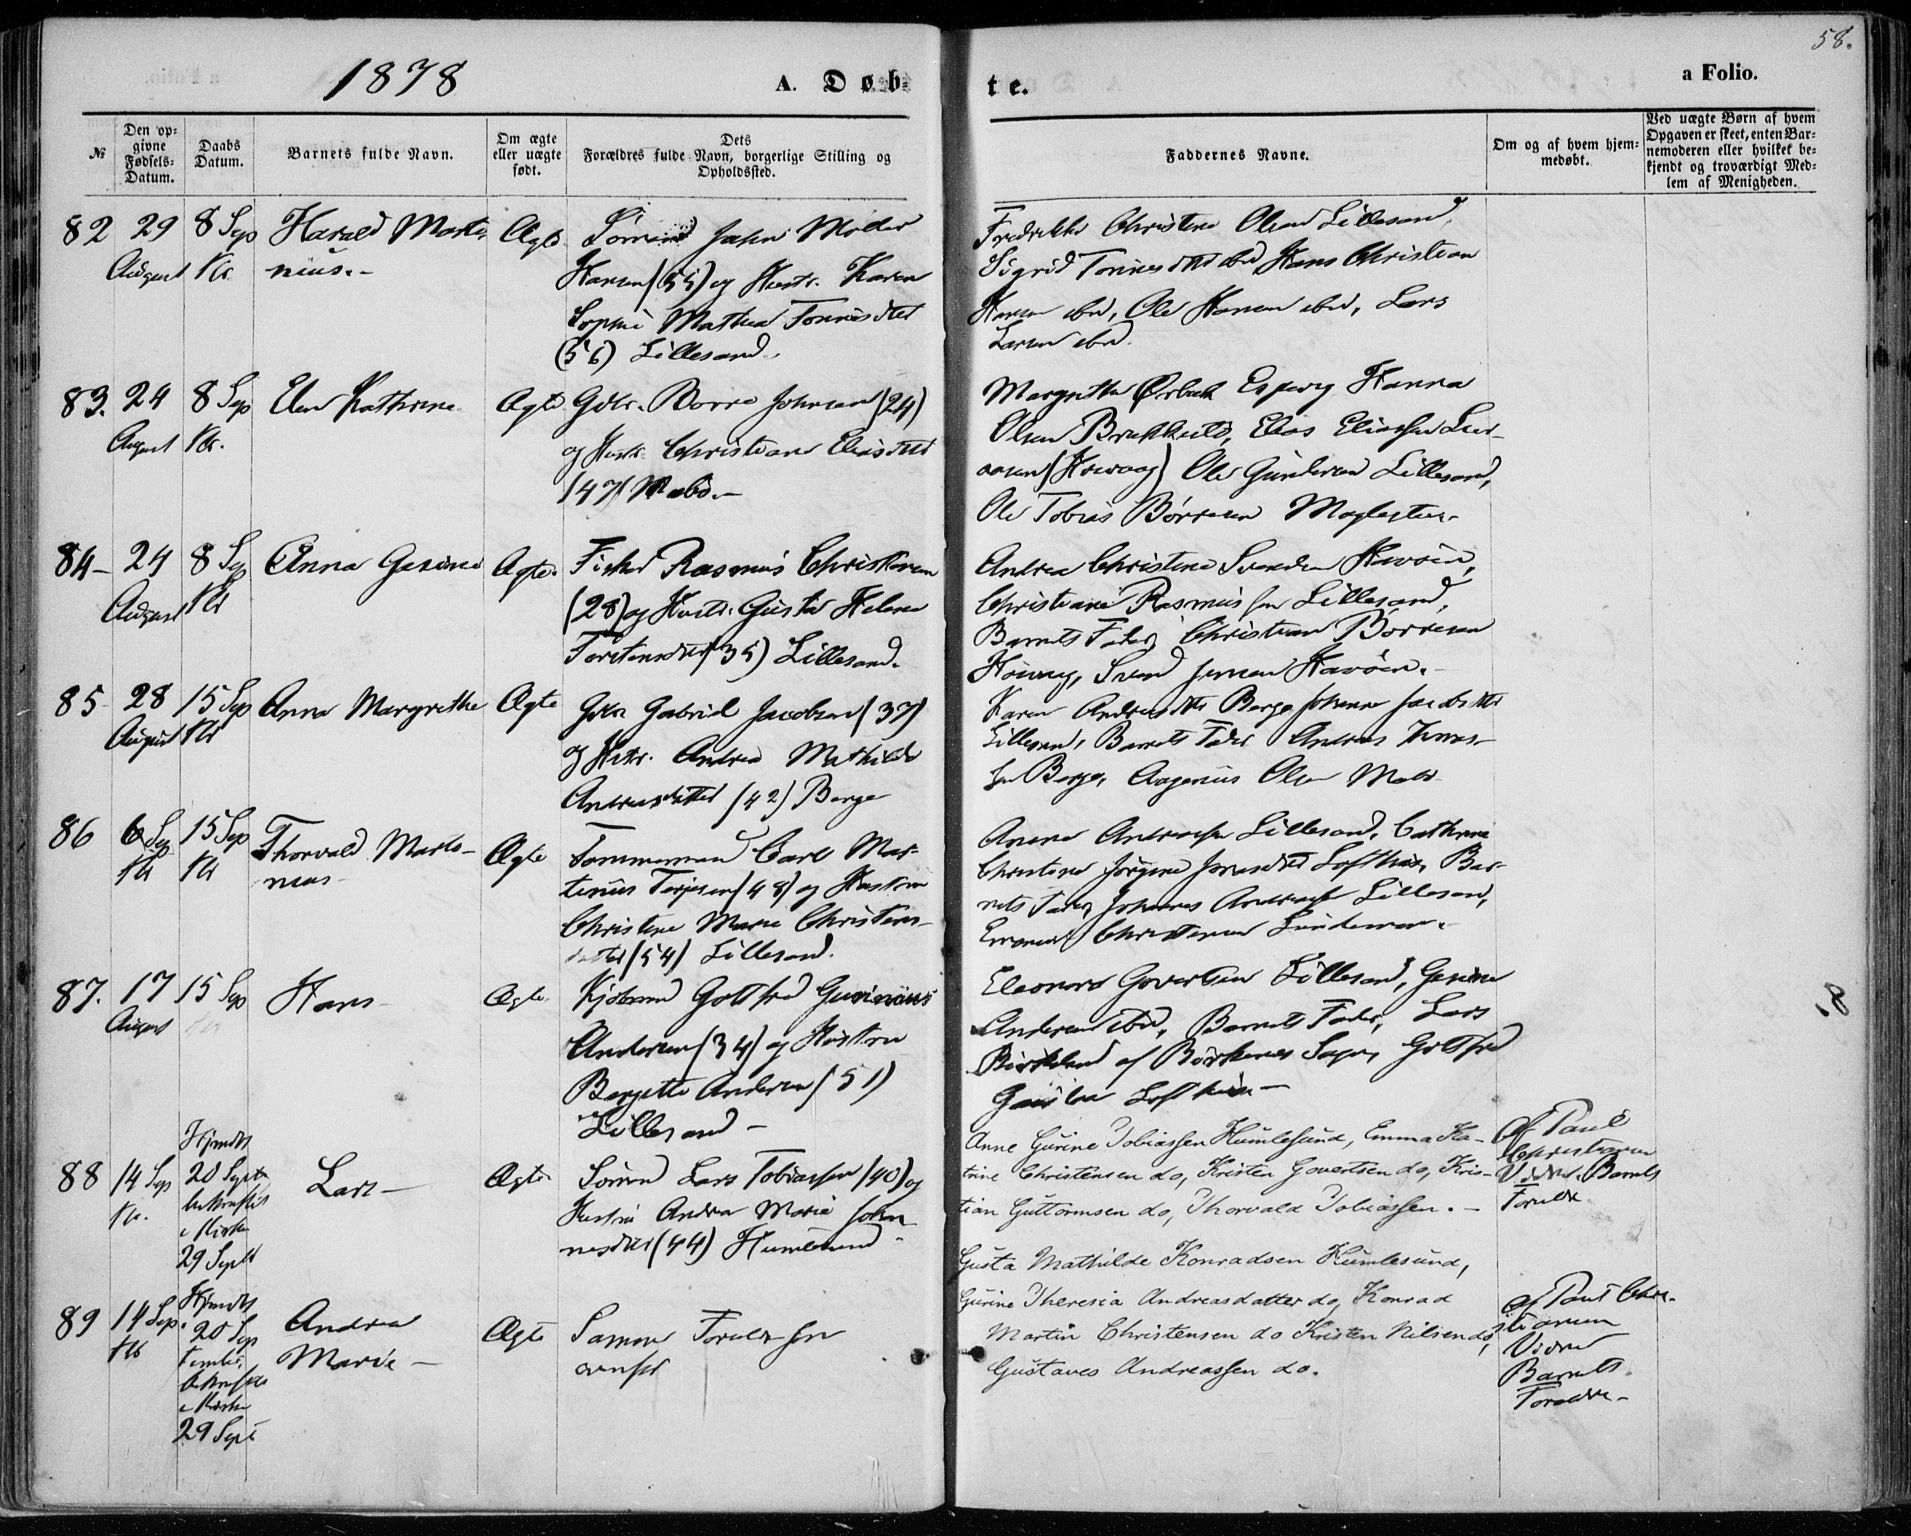 58.
1878
A. Døb-
te.
a Folio.
№
Den op-
givne
Fødsels-
Datum.
Daabs
Datum.
Barnets fulde Navn.
Om ægte
eller uægte
født.
Dets
Forældres fulde Navn, borgerlige Stilling og
Opholdssted.
Faddernes Navne.
Om og af hvem hjem-
medøbt.
Ved uægte Børn af hvem
Opgaven er skeet, enten Bar-
nemoderen eller hvilket be-
kjendt og troværdigt Med-
lem af Menigheden.
82 29 August 8 Sep Kl. Harald Marti-
nius.- Ægte Sømand John Moder
Hansen (55) og Hustr. Karen
Sophie Mathea Tønnesdtter
(56) Lillesand.
Fredrikke Christine Olsen Lillesand,
Sigrid Tønnesdtter ibd Hans Christian
Hansen ibd, Ole Hansen ibd, Lars
Larsen ibd.
83. 24 August 8 Sep Kl. Elen Kathrine Ægte Gdbr. Børre Johnsen (24)
og Hustr. Christiane Eliasdtter
(47) Mæbø.-
Margrethe Hanna
Olsen Elias Eliassen
(Høivaag) Ole Gundersen Lillesand,
Ole Tobias Børresen
84- 24 August 8 Sep Kl Anna Gesine Ægte. Fisker Rasmus Christensen
(28) og Hustr. Gusta Helene
Torstensdtter (35) Lillesand.
Andrea Christine Svendsen Havøen,
Christiane Rasmussen Lillesand,
Barnets Fader, Christian Børresen
Høivaag, Svend Jensen Havøen.-
85 28 August 15 Sep Kl Anne Margrethe Ægte Gdbr Gabriel Jacobsen (37)
og Hustr. Andrea Mathilde
Andreasdatter (42) Berge
Karen Andreasdtter Berge Johanne Jacobsdtter
Lillesand, Barnets Fader Andreas
sen Berge, Aagenius Olsen
86 6 Sep Kl 15 Sep Kl Thorvald Marti-
nius- Ægte Tømmermand Carl Mar-
tinius Terjesen (48) og Hustru
Christine Marie Christens-
datter (54) Lillesand.
Andreassen Lillesand, Cathrine
Christine Jørgine Jensdtter Lofthus, Bar-
nets Fader, Johannes Andreassen Lillesand,
Christensen
87. 17 August 15 Sep Kl Hans- Ægte Kjøbmand Gottfred Gunnius
Andersen (34) og Hustru
Bergitte Andersen (51)
Lillesand -
Eleonora Govertsen Lillesand, Gesine
Andersen ibd, Barnets Fader, Lars
Birkeland af Birkenes Sogn, Gottfred
88 14 Sep Kl. Hjmdbt
20 Septr
bekræftet
i Kirken
29 Septr
Lars - Ægte Sømd Lars Tobiassen (40) og
Hustru Andrea Marie Johan-
nesdtter (44) Humlesund -
Anne Gurine Tobiassen Humlesund, Emma Ka-
trine Christensen do, Kristen Govertsen do, Kris-
tian Guttormsen do, Thorvald Tobiassen. -
af Paul
Christensen
Vidner Barnets
Forældre
89 14 Sep. Kl Hjmdbt
20 Sep
tember,
bekræftet
i Kirken
29 Sept
Andrea
Marie - Ægte Samme Forældre som
ovenfor
Gusta Mathilde Konradsen Humlesund,
Gurine Theresia Andreasdatter do, Konrad
Martin Christensen do Kristen Nilsen do,
Gustaves Andreassen do.
af Paul Chri-
stensen
Vidner
Barnets
Forældre-